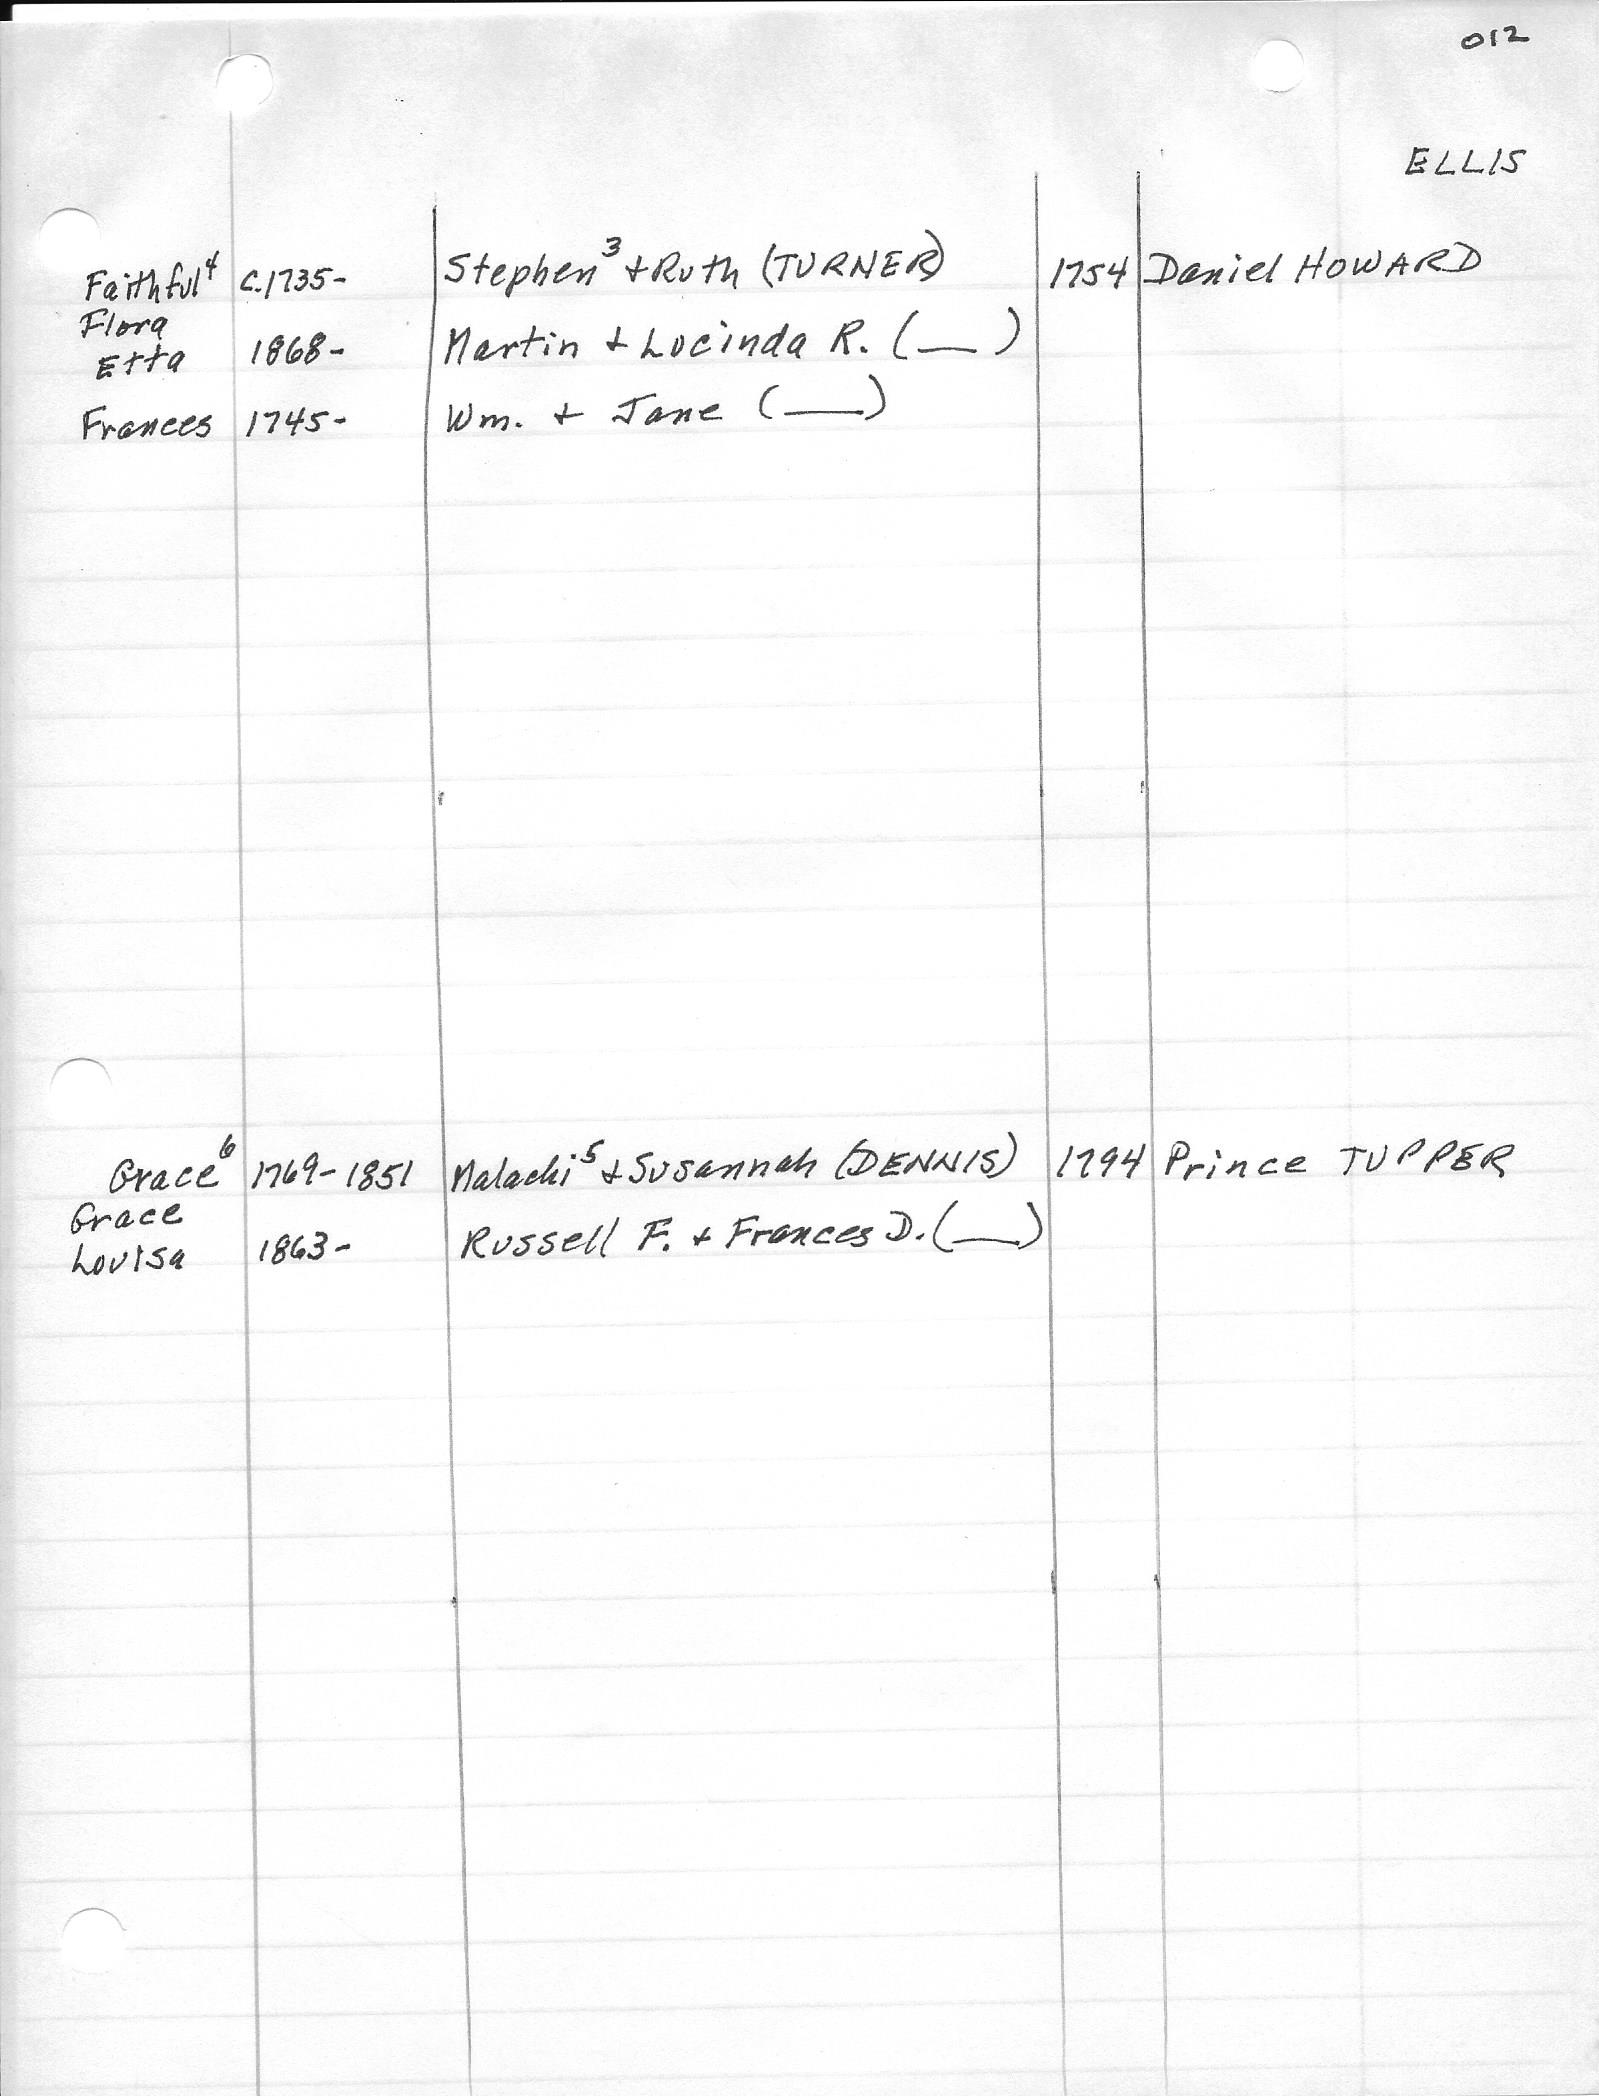 012
ELLIS
Faithful⁴ c.1735- Stephen³ + Ruth (TURNER) 1754 Daniel HOWARD
Flora
Etta 1868- Martin + Lucinda R. (__)
Frances 1745- Wm. + Jane (__)
Grace⁶ 1769-1851 Malachi⁵ + Susannah (DENNIS) 1794 Prince TUPPER
Grace
Louisa 1863- Russell F. + Frances D. (__)